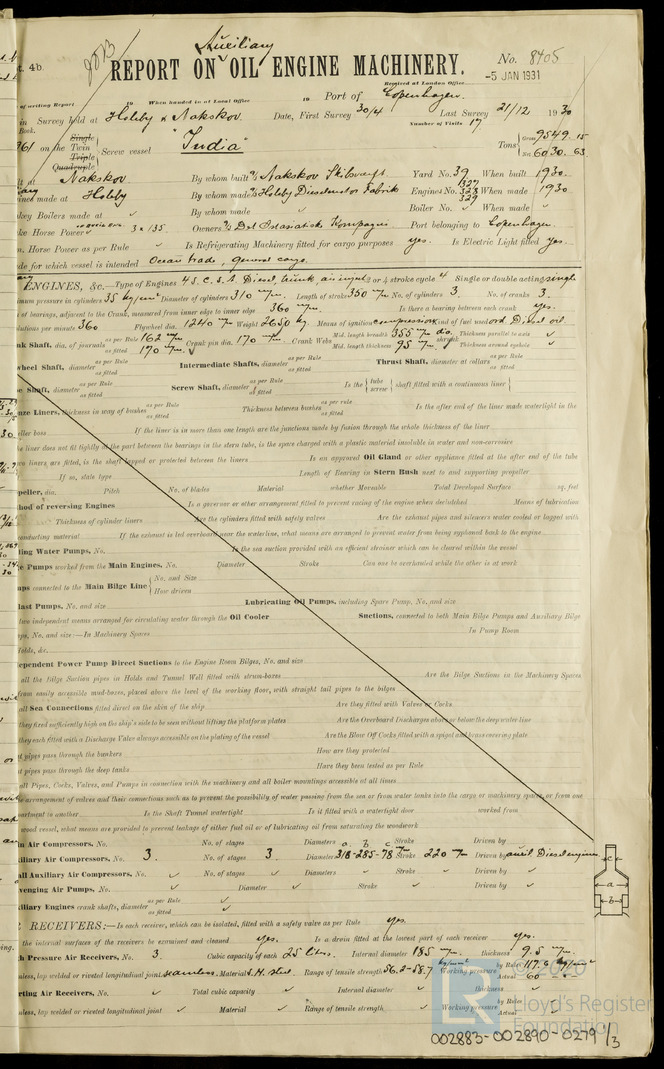 Auxiliary
t. 4b.
REPORT ON OIL ENGINE MACHINERY.
No. 8405
Received at London Office
-5 JAN 1931
of writing Report 19 When handed in at Local Office 19 Port of Copenhagen.
in Survey held at Holeby & Nakskov. Date, First Survey 30/4 Last Survey 21/12 1930
Book. Number of Visits 17
Single
961 on the Twin Screw vessel "India" Tons Gross 9549.15
Triple Net 6030.63
Quadruple
lt at Nakskov By whom built Nakskov Skibsværft Yard No. 39 When built 1930.
ines made at Holeby By whom made Holeby Dieselmotor Fabrik Engines No. 327 328 329 When made 1930
key Boilers made at ✓ By whom made ✓ Boiler No. ✓ When made ✓
ke Horse Power 3 x 135. Owners Det Østasiatiske Kompagni Port belonging to Copenhagen.
m. Horse Power as per Rule ✓ Is Refrigerating Machinery fitted for cargo purposes yes. Is Electric Light fitted yes.
de for which vessel is intended Ocean trade, general cargo.
ENGINES, &c.—Type of Engines 4 S.C. S.A Diesel, trunk, air inject. 2 or 4 stroke cycle 4 Single or double acting single
imum pressure in cylinders 35 kg/cm² Diameter of cylinders 310 m/m. Length of stroke 350 m/m No. of cylinders 3. No. of cranks 3.
n of bearings, adjacent to the Crank, measured from inner edge to inner edge 360 m/m. Is there a bearing between each crank yes.
olutions per minute 360 Flywheel dia. 1240 m/m Weight 2650 kg. Means of ignition compression Kind of fuel used ord. Diesel oil.
nk Shaft, dia. of journals as per Rule 162 m/m as fitted 170 m/m. ✓ Crank pin dia. 170 m/m. Crank Webs Mid. length breadth 355 m/m dia. Mid. length thickness 95 m/m. shrunk Thickness parallel to axis ✓ Thickness around eyehole ✓
wheel Shaft, diameter as per Rule as fitted Intermediate Shafts, diameter as per Rule as fitted Thrust Shaft, diameter at collars as per Rule as fitted
e Shaft, diameter as per Rule as fitted Screw Shaft, diameter as per Rule as fitted Is the tube screw shaft fitted with a continuous liner
nze Liners, thickness in way of bushes as per Rule as fitted Thickness between bushes as per rule as fitted Is the after end of the liner made watertight in the
eller boss If the liner is in more than one length are the junctions made by fusion through the whole thickness of the liner
he liner does not fit tightly at the part between the bearings in the stern tube, is the space charged with a plastic material insoluble in water and non-corrosive
wo liners are fitted, is the shaft lapped or protected between the liners Is an approved Oil Gland or other appliance fitted at the after end of the tube
If so, state type Length of Bearing in Stern Bush next to and supporting propeller
peller, dia. Pitch No. of blades Material whether Moveable Total Developed Surface sq. feet
hod of reversing Engines Is a governor or other arrangement fitted to prevent racing of the engine when declutched Means of lubrication
Thickness of cylinder liners Are the cylinders fitted with safety valves Are the exhaust pipes and silencers water cooled or lagged with
conducting material If the exhaust is led overboard near the waterline, what means are arranged to prevent water from being syphoned back to the engine
ling Water Pumps, No. Is the sea suction provided with an efficient strainer which can be cleared within the vessel
e Pumps worked from the Main Engines, No. Diameter Stroke Can one be overhauled while the other is at work
ps connected to the Main Bilge Line No. and Size How driven
last Pumps, No. and size Lubricating Oil Pumps, including Spare Pump, No. and size
two independent means arranged for circulating water through the Oil Cooler Suctions, connected to both Main Bilge Pumps and Auxiliary Bilge
ps, No. and size:—In Machinery Spaces In Pump Room
Holds, &c.
ependent Power Pump Direct Suctions to the Engine Room Bilges, No. and size
all the Bilge Suction pipes in Holds and Tunnel Well fitted with strum-boxes Are the Bilge Suctions in the Machinery Spaces
from easily accessible mud-boxes, placed above the level of the working floor, with straight tail pipes to the bilges
all Sea Connections fitted direct on the skin of the ship Are they fitted with Valves or Cocks
they fixed sufficiently high on the ship's side to be seen without lifting the platform plates Are the Overboard Discharges above or below the deep water line
they each fitted with a Discharge Valve always accessible on the plating of the vessel Are the Blow Off Cocks fitted with a spigot and brass covering plate
t pipes pass through the bunkers How are they protected
t pipes pass through the deep tanks Have they been tested as per Rule
all Pipes, Cocks, Valves, and Pumps in connection with the machinery and all boiler mountings accessible at all times
e arrangement of valves and their connections such as to prevent the possibility of water passing from the sea or from water tanks into the cargo or machinery spaces, or from one
partment to another Is the Shaft Tunnel watertight Is it fitted with a watertight door worked from
wood vessel, what means are provided to prevent leakage of either fuel oil or of lubricating oil from saturating the woodwork
in Air Compressors, No. No. of stages Diameters a. b. c. Stroke Driven by
iliary Air Compressors, No. 3. No. of stages 3. Diameters 318-285-78 m/m Stroke 220 m/m Driven by auxil. Diesel engines
all Auxiliary Air Compressors, No. ✓ No. of stages ✓ Diameters ✓ Stroke ✓ Driven by ✓
venging Air Pumps, No. ✓ Diameter ✓ Stroke ✓ Driven by ✓
iliary Engines crank shafts, diameter as per Rule as fitted ✓
c
a
b
RECEIVERS:—Is each receiver, which can be isolated, fitted with a safety valve as per Rule yes.
the internal surfaces of the receivers be examined and cleaned yes. Is a drain fitted at the lowest part of each receiver yes.
h Pressure Air Receivers, No. 3. Cubic capacity of each 25 liters. Internal diameter 185 m/m. thickness 9.5 m/m.
mless, lap welded or riveted longitudinal joint seamless. Material S.M. steel. Range of tensile strength 56.2-58.7 kg/mm² Working pressure by Rules 117.6 kg/cm² Actual 60 - -
rting Air Receivers, No. ✓ Total cubic capacity ✓ Internal diameter ✓ thickness ✓
mless, lap welded or riveted longitudinal joint ✓ Material ✓ Range of tensile strength ✓ Working pressure by Rules Actual ✓
© 2020
Lloyd's Register
Foundation
002883-002890-0279 1/3